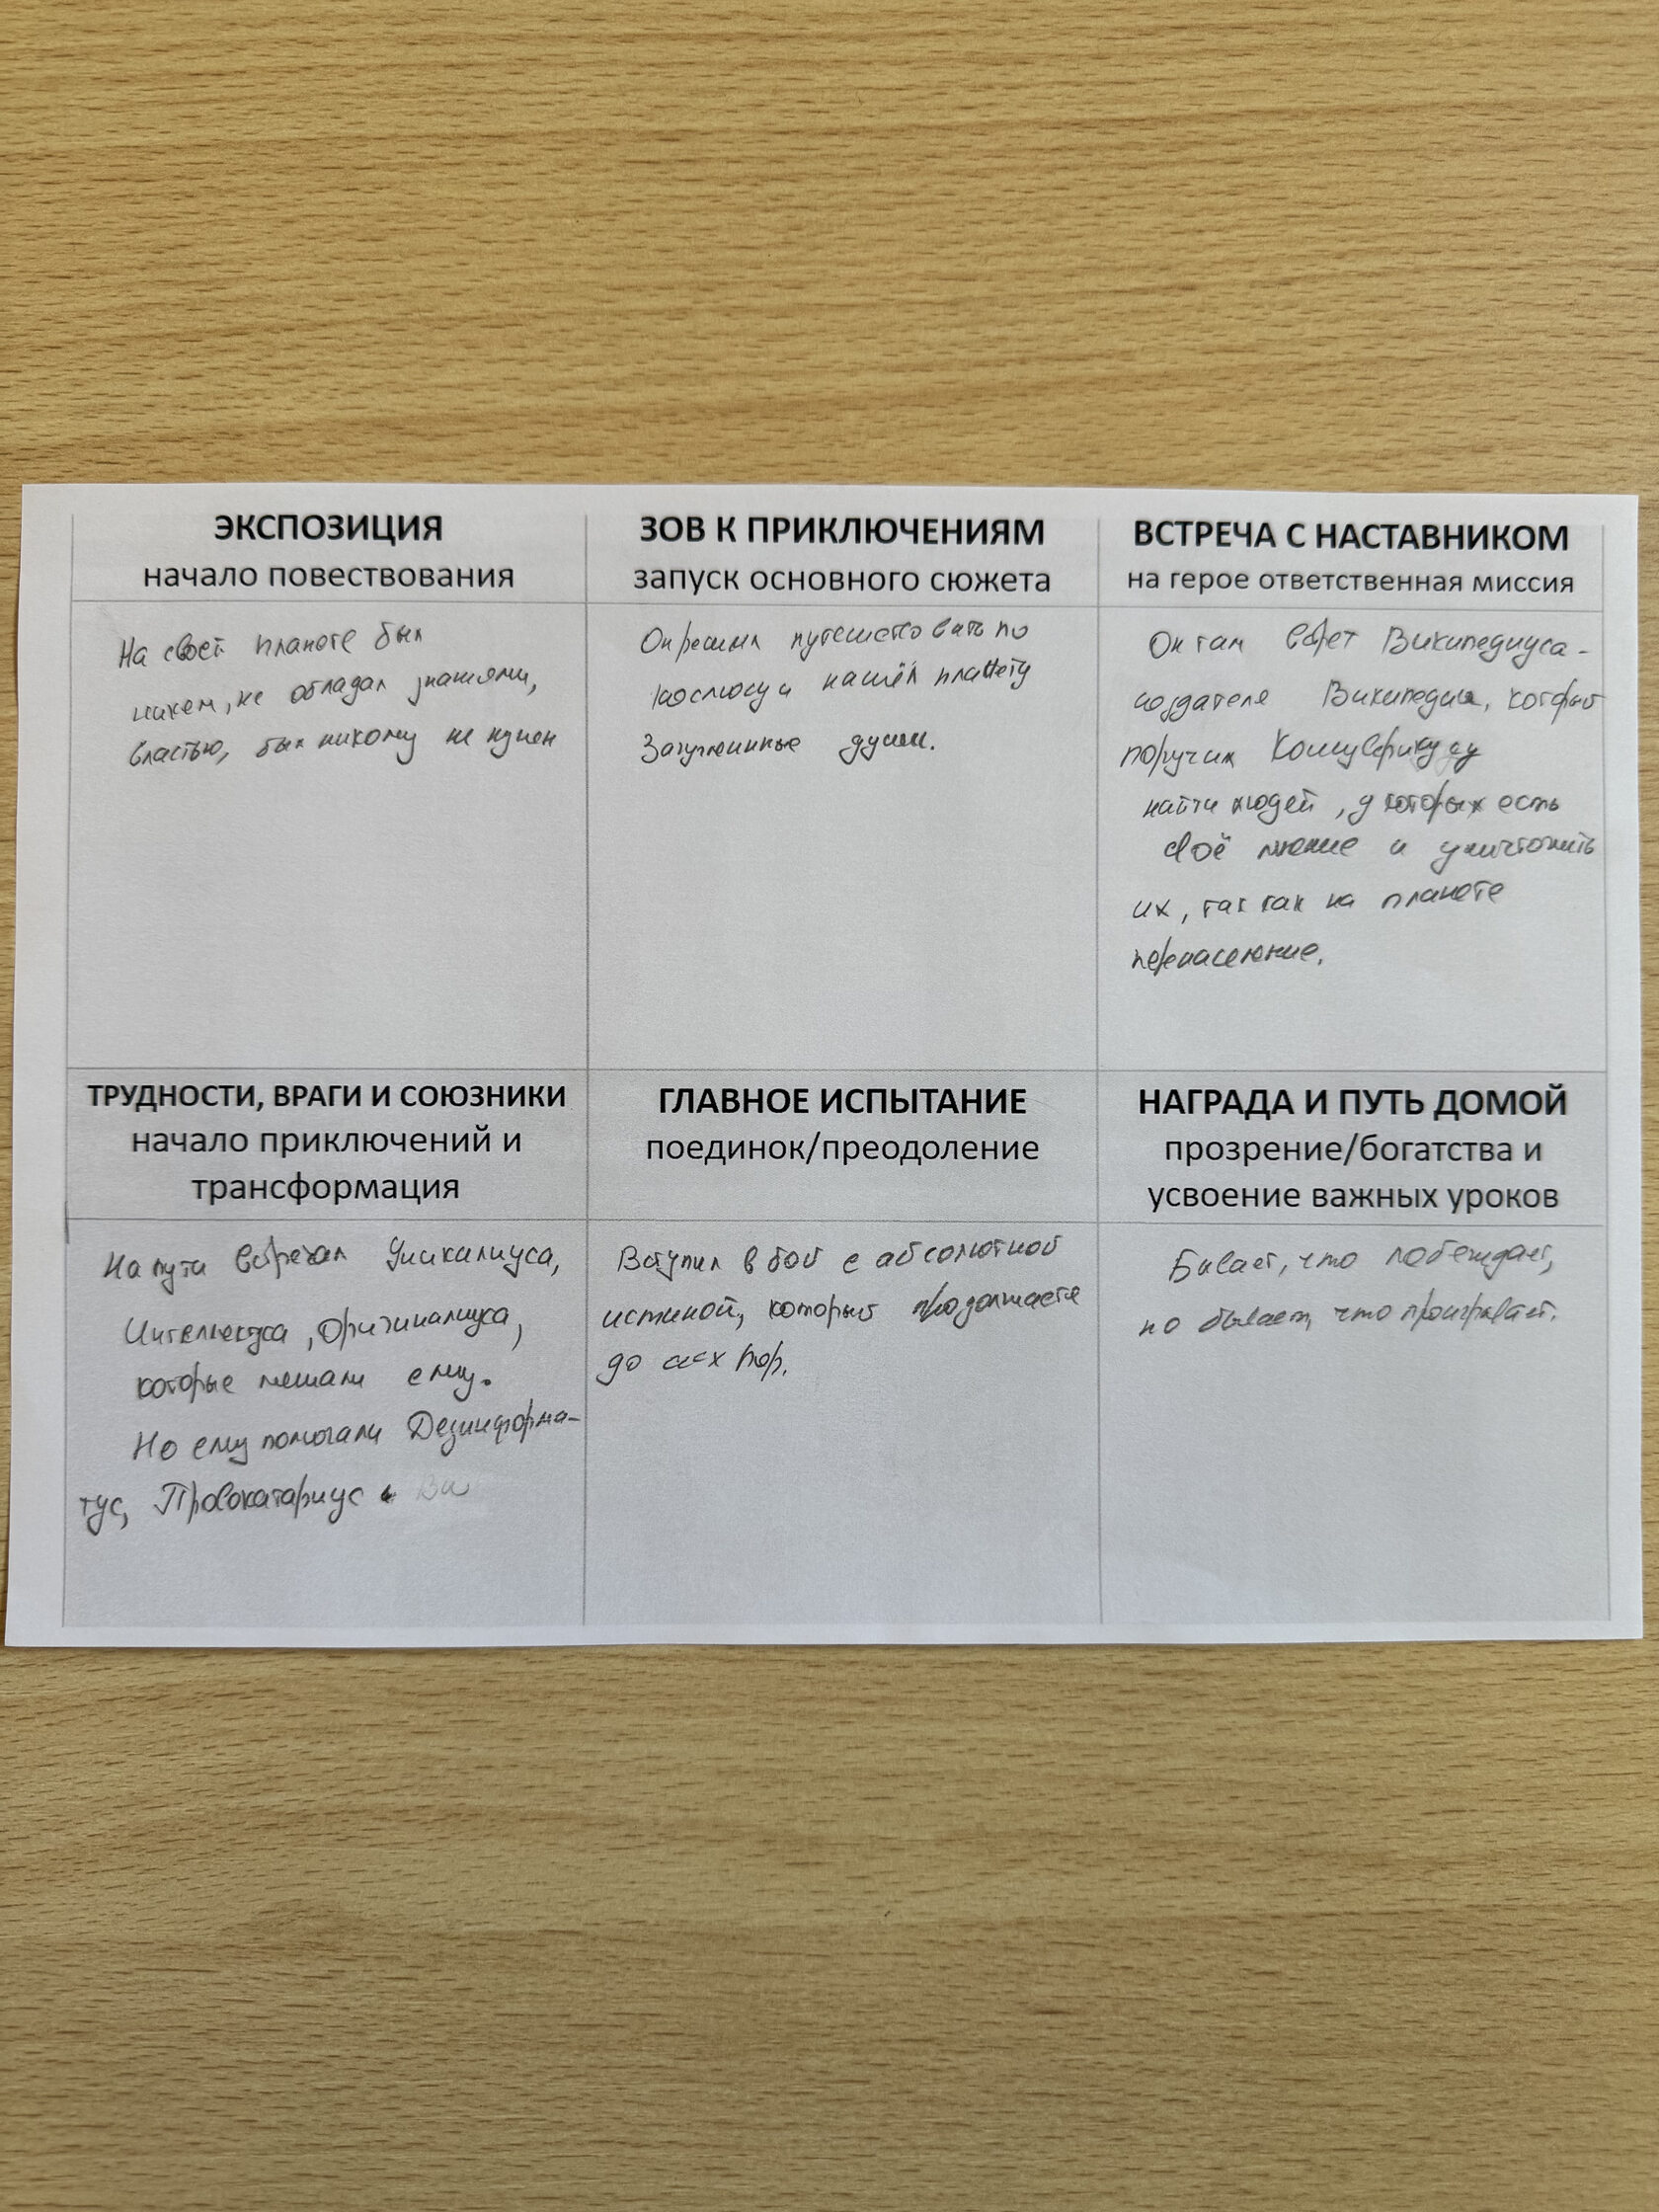 ЭКСПОЗИЦИЯ
начало повествования
На своей планете был
никем, не обладал знаниями,
властью, был никому не нужен
ЗОВ К ПРИКЛЮЧЕНИЯМ
запуск основного сюжета
Он решил путешествовать по
космосу и нашёл планету
Загугленные души.
ВСТРЕЧА С НАСТАВНИКОМ
на герое ответственная миссия
Он там Википедиуса -
создателя Википедии, который
поручил
найти людей, у которых есть
своё мнение и уничтожить
их, так как на планете
перенаселение.
ТРУДНОСТИ, ВРАГИ И СОЮЗНИКИ
начало приключений и
трансформация
На пути встречал Уникалиуса,
Интеллектуса, Оригиналиуса,
которые мешали ему.
Но ему помогали Дезинформа-
тус, Провокатариус и
ГЛАВНОЕ ИСПЫТАНИЕ
поединок/преодоление
Вступил в бой с абсолютной
истиной, который продолжается
до сих пор.
НАГРАДА И ПУТЬ ДОМОЙ
прозрение/богатства и
усвоение важных уроков
Бывает, что побеждает,
но бывает, что проигрывает.